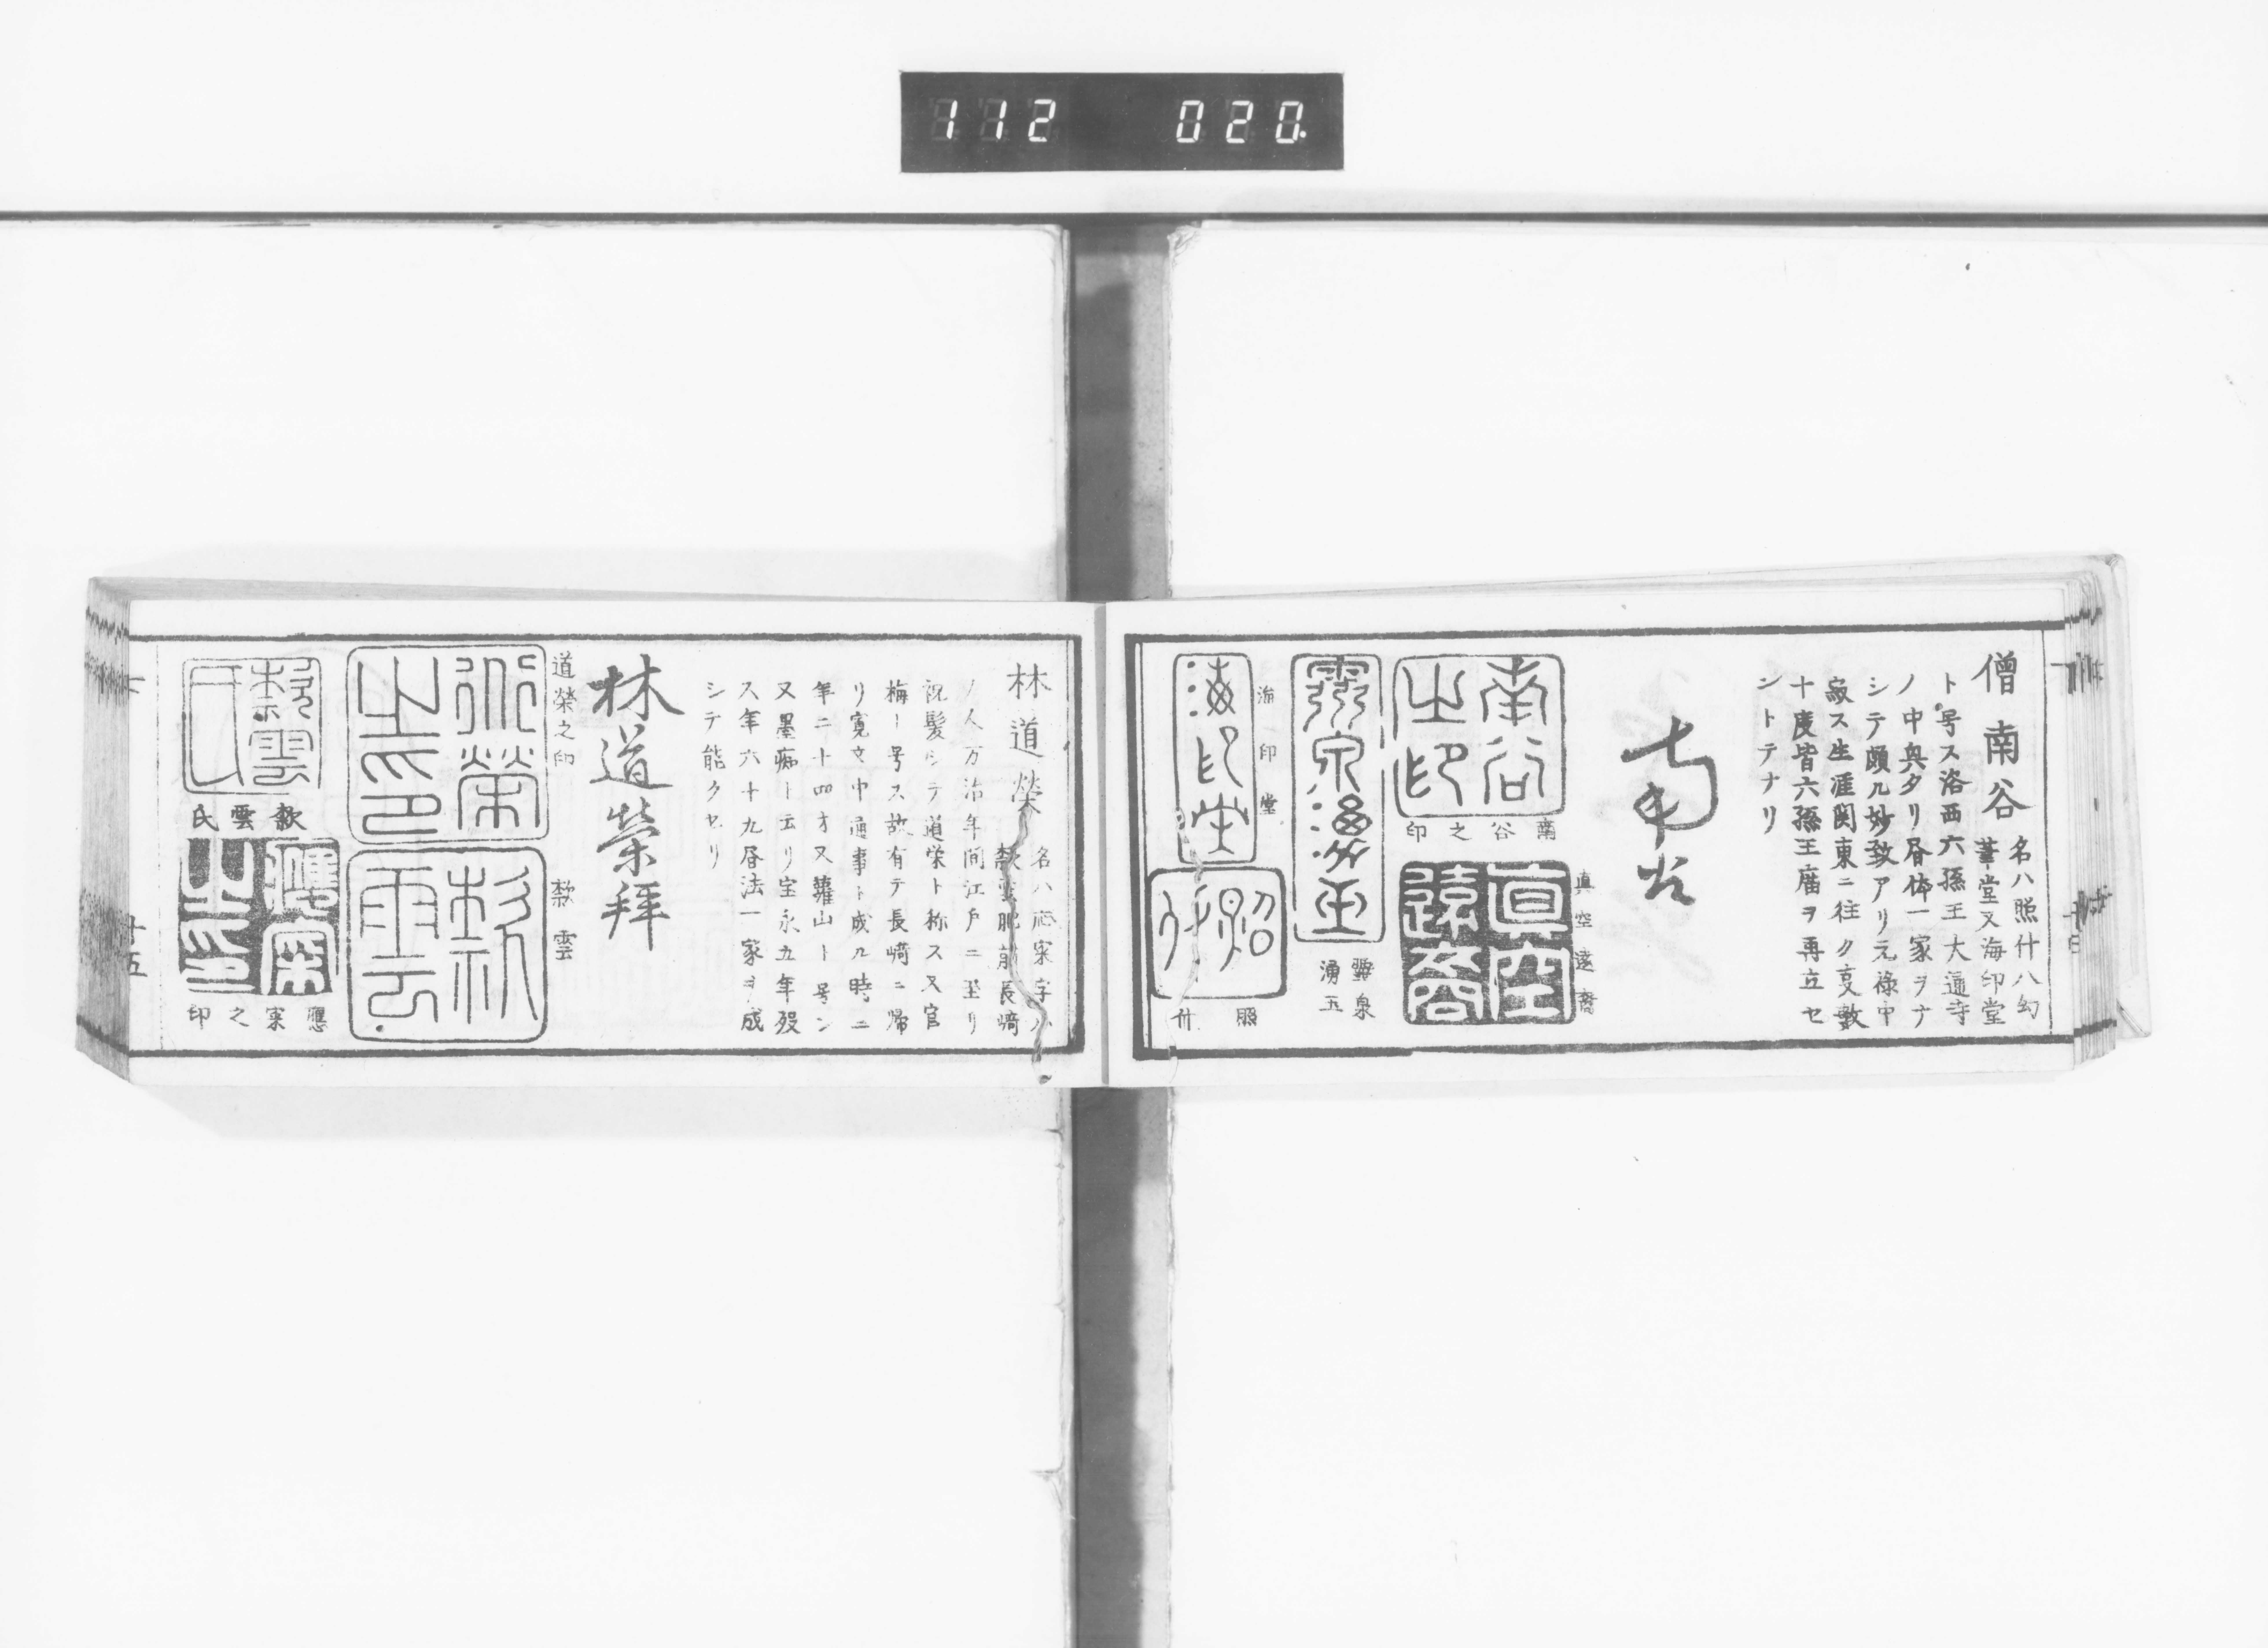 112 020.
僧南谷
名ハ照什八幻
華堂又海印堂
ト号ス洛西六孫王大通寺
ノ中興タリ唇体一家ヲナ
シテ頗ル妙致アリ元禄中
寂ス生涯関東ニ往ク亥数
十度皆六孫王廟ヲ再立セ
シトテナリ
南谷
南谷之印
南谷之印
真空遠裔
真空遠裔
靈泉湧玉
靈泉
湧玉
海印堂
海印堂
照什
照什
林道榮
名ハ應宷字ハ
歘雲肥前長﨑
ノ人万治年間江戸ニ至リ
祝髪シテ道栄ト称ス又官
梅ト号ス故有テ長﨑ニ帰
リ寛文中通事ト成ル時ニ
年二十四才又蘿山ト号シ
又墨痴ト云リ宝永五年歿
ス年六十九唇法一家ヲ成
シテ能クセリ
林道榮拜
道榮之印
道榮之印
歘雲
歘雲
歘雲氏
歘雲氏
應宷之印
應宷之印
十五